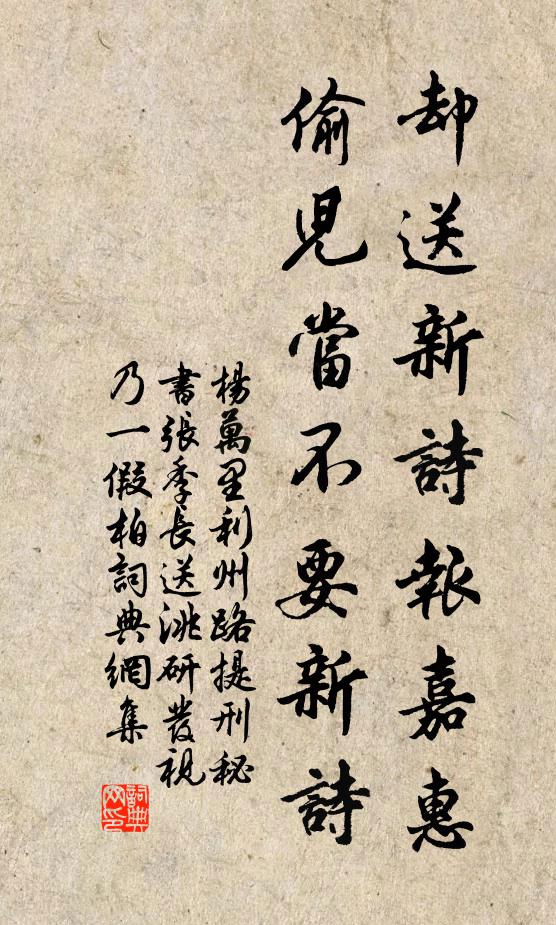 却送新詩報嘉惠
偷兒當不要新詩
楊萬里利州路提刑秘
書張季長送洮研發視
乃一假柏詞典網集
詞典网印